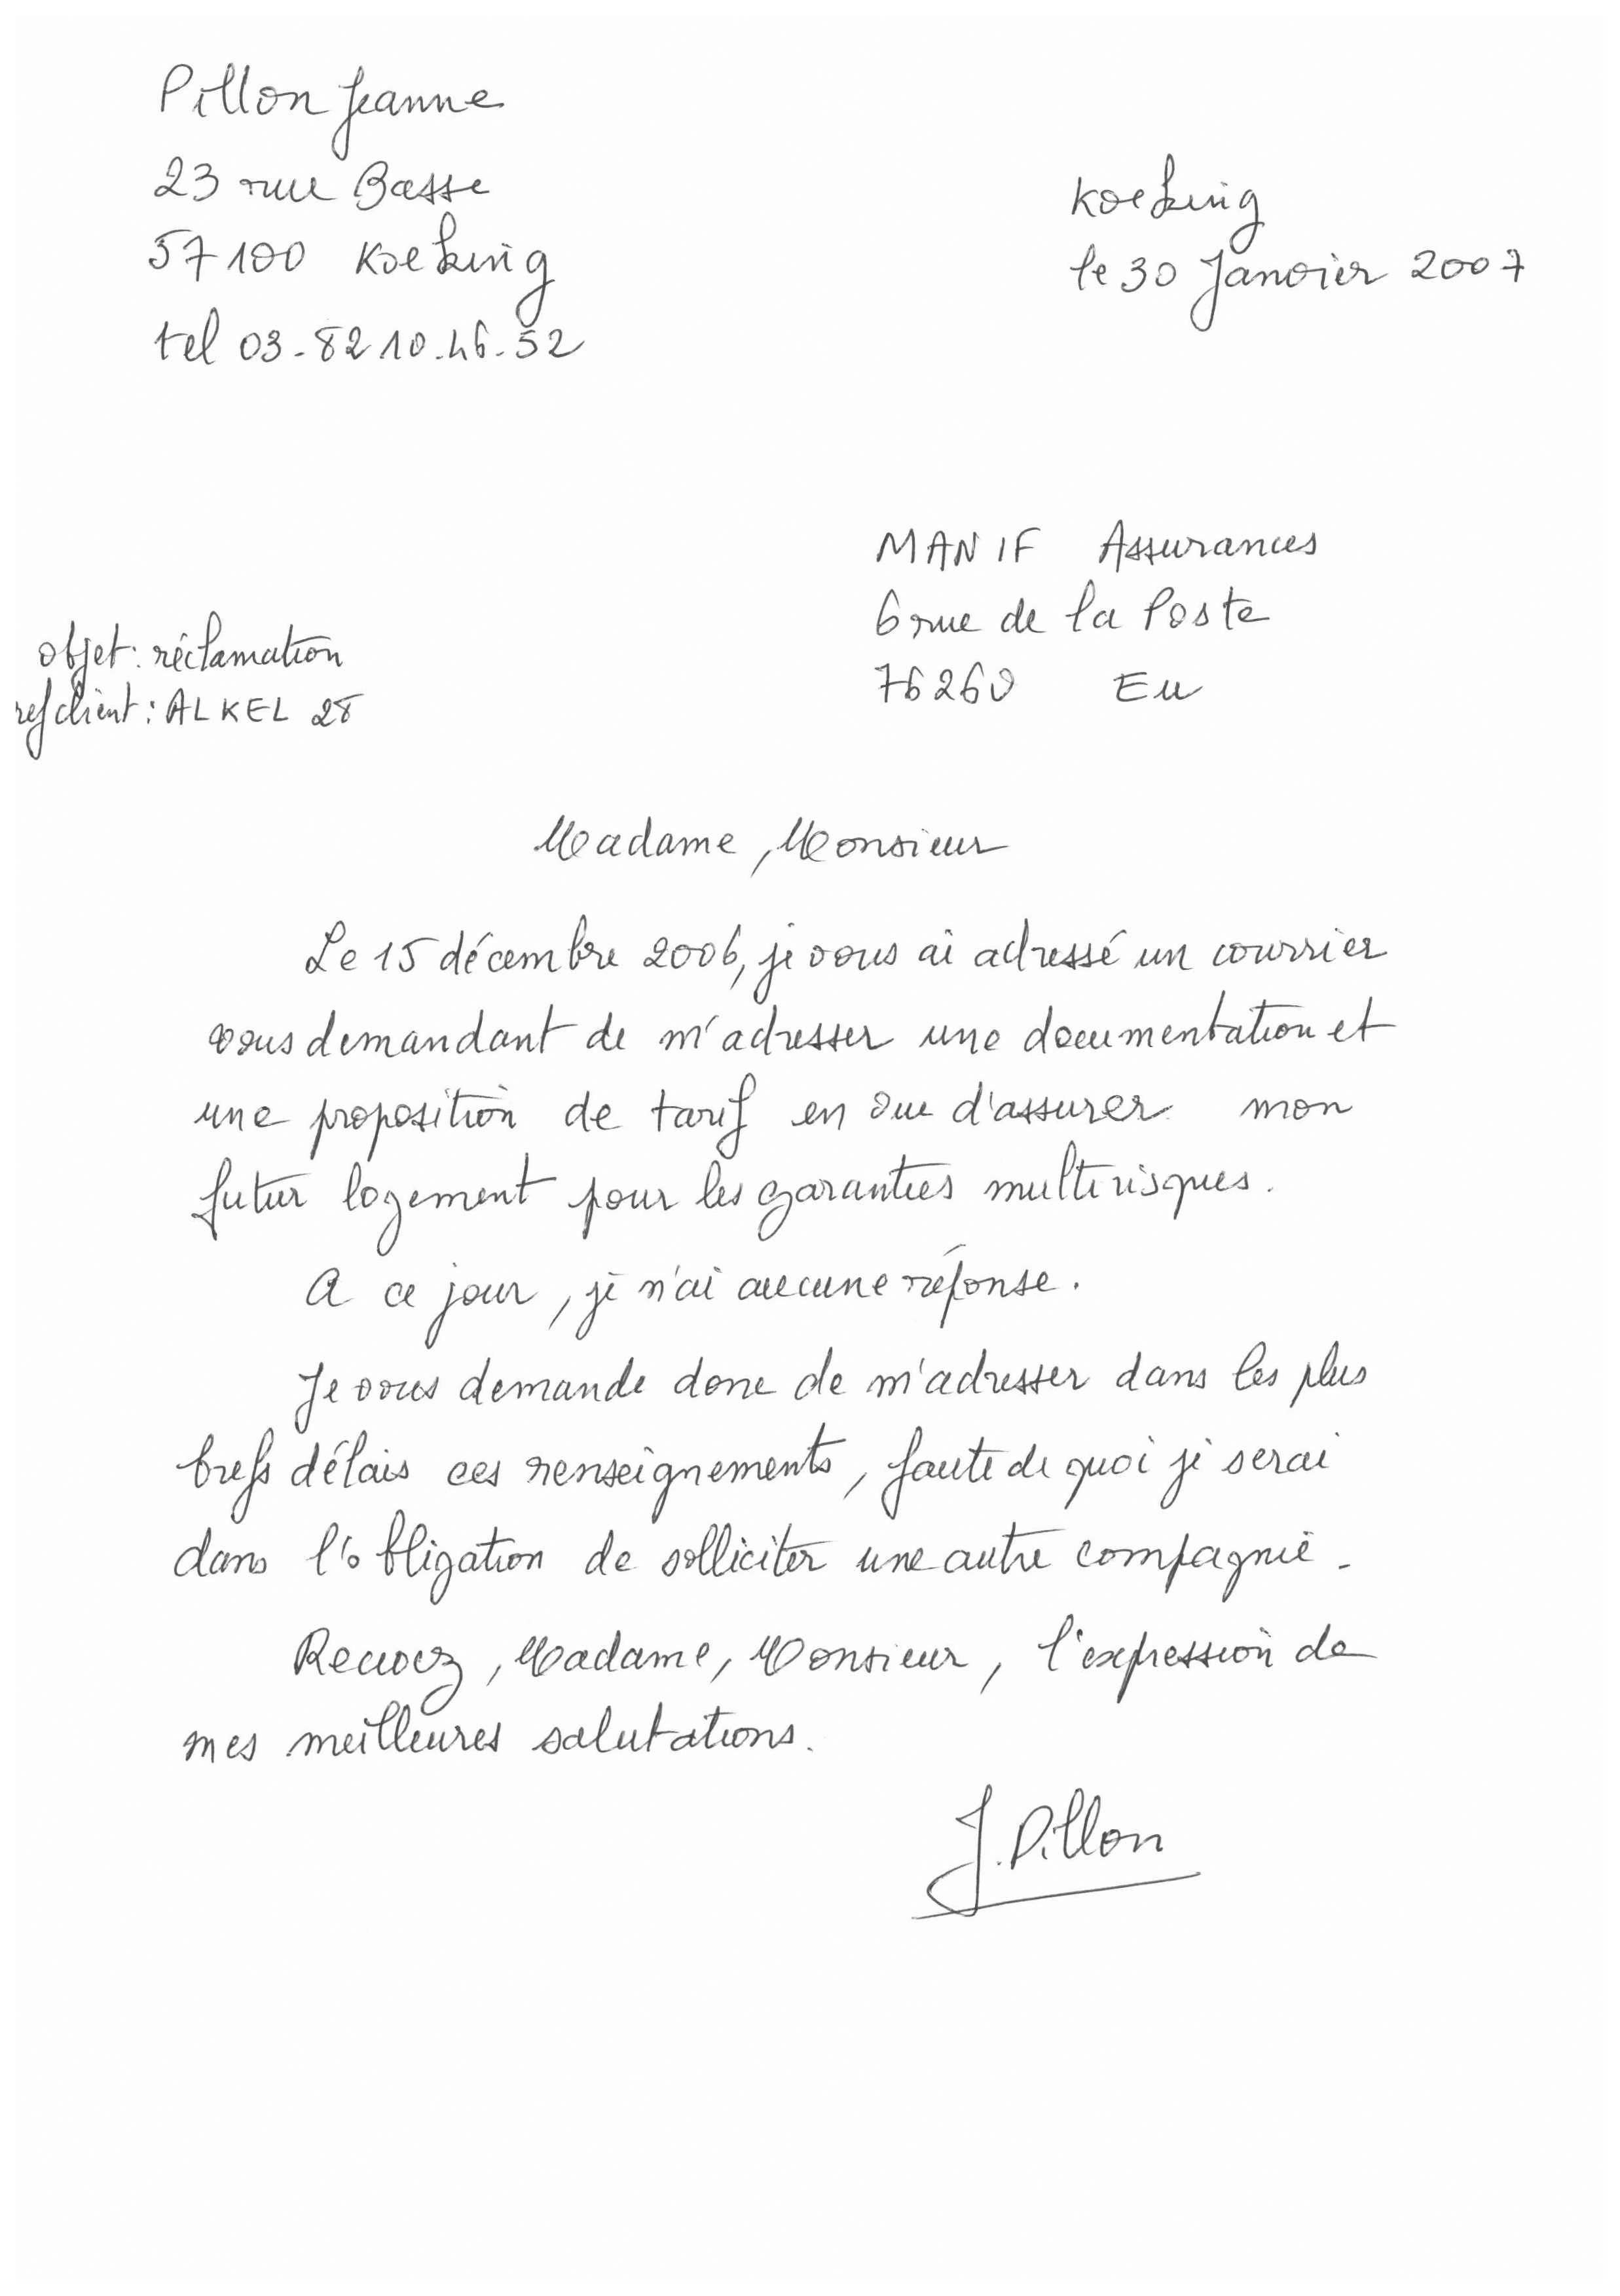 Pillon Jeanne
23 rue Basse
57100 Koeking
tel 03-82 10.46-52
Koeking
le 30 Janvier 2007
MANIF Assurances
6 rue de la Poste
76260 Eu
objet: réclamation
ref client: ALKEL 28
Madame, Monsieur
Le 15 décembre 2006, je vous ai adressé un courrier
vous demandant de m'adresser une documentation et
une proposition de tarif en vue d'assurer mon
futur logement pour les garanties multirisques.
A ce jour, je n'ai aucune réponse.
Je vous demande donc de m'adresser dans les plus
brefs délais ces renseignements, faute de quoi je serai
dans l'obligation de solliciter une autre compagnie.
Recevez, Madame, Monsieur, l'expression de
mes meilleures salutations.
J. Pillon